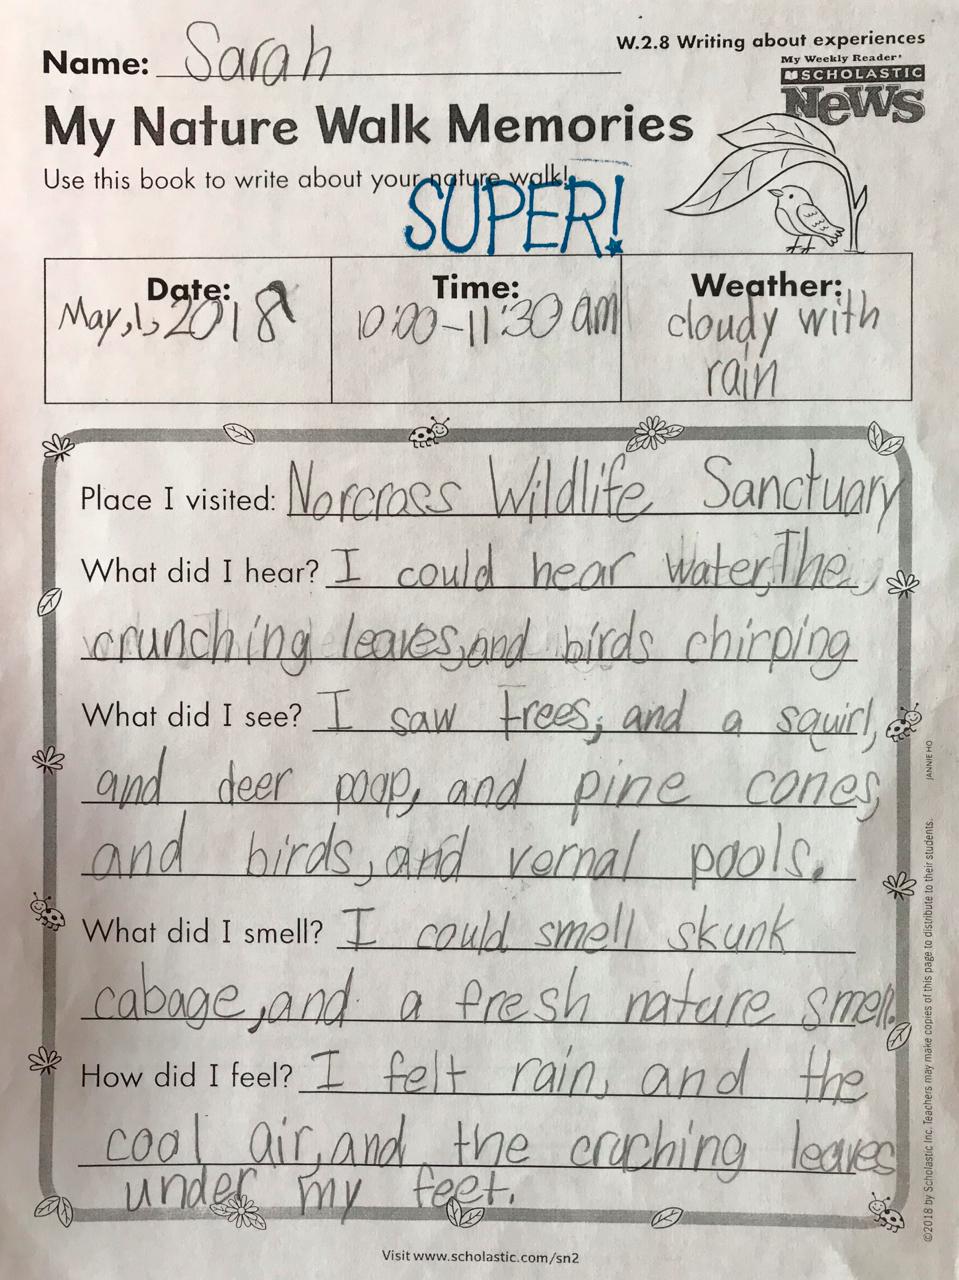 W.2.8 Writing about experiences
Name: Sarah
My Weekly Reader
SCHOLASTIC
News
My Nature Walk Memories
Use this book to write about your nature walk!
SUPER!
Date: Time: Weather:
May,1,2018 10:00-11:30 am cloudy with
rain
Place I visited: Norcross Wildlife Sanctuary
What did I hear? I could hear water,The
crunching leaves,and birds chirping
What did I see? I saw trees, and a squirl,
and deer poop, and pine cones,
and birds, and vernal pools.
What did I smell? I could smell skunk
cabage,and a fresh nature smell.
How did I feel? I felt rain, and the
cool air,and the cruching leaves
under my feet.
Visit www.scholastic.com/sn2
©2018 by Scholastic Inc. Teachers may make copies of this page to distribute to their students.
JANNIE HO